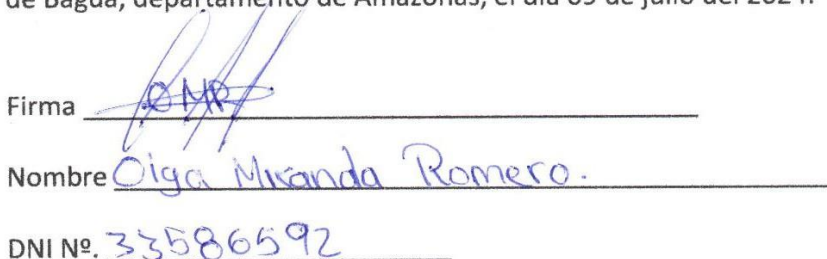 de Bagua, departamento de Amazonas, el día 09 de julio del 2024.
Firma OMR
Nombre Olga Miranda Romero.
DNI Nº. 33586592